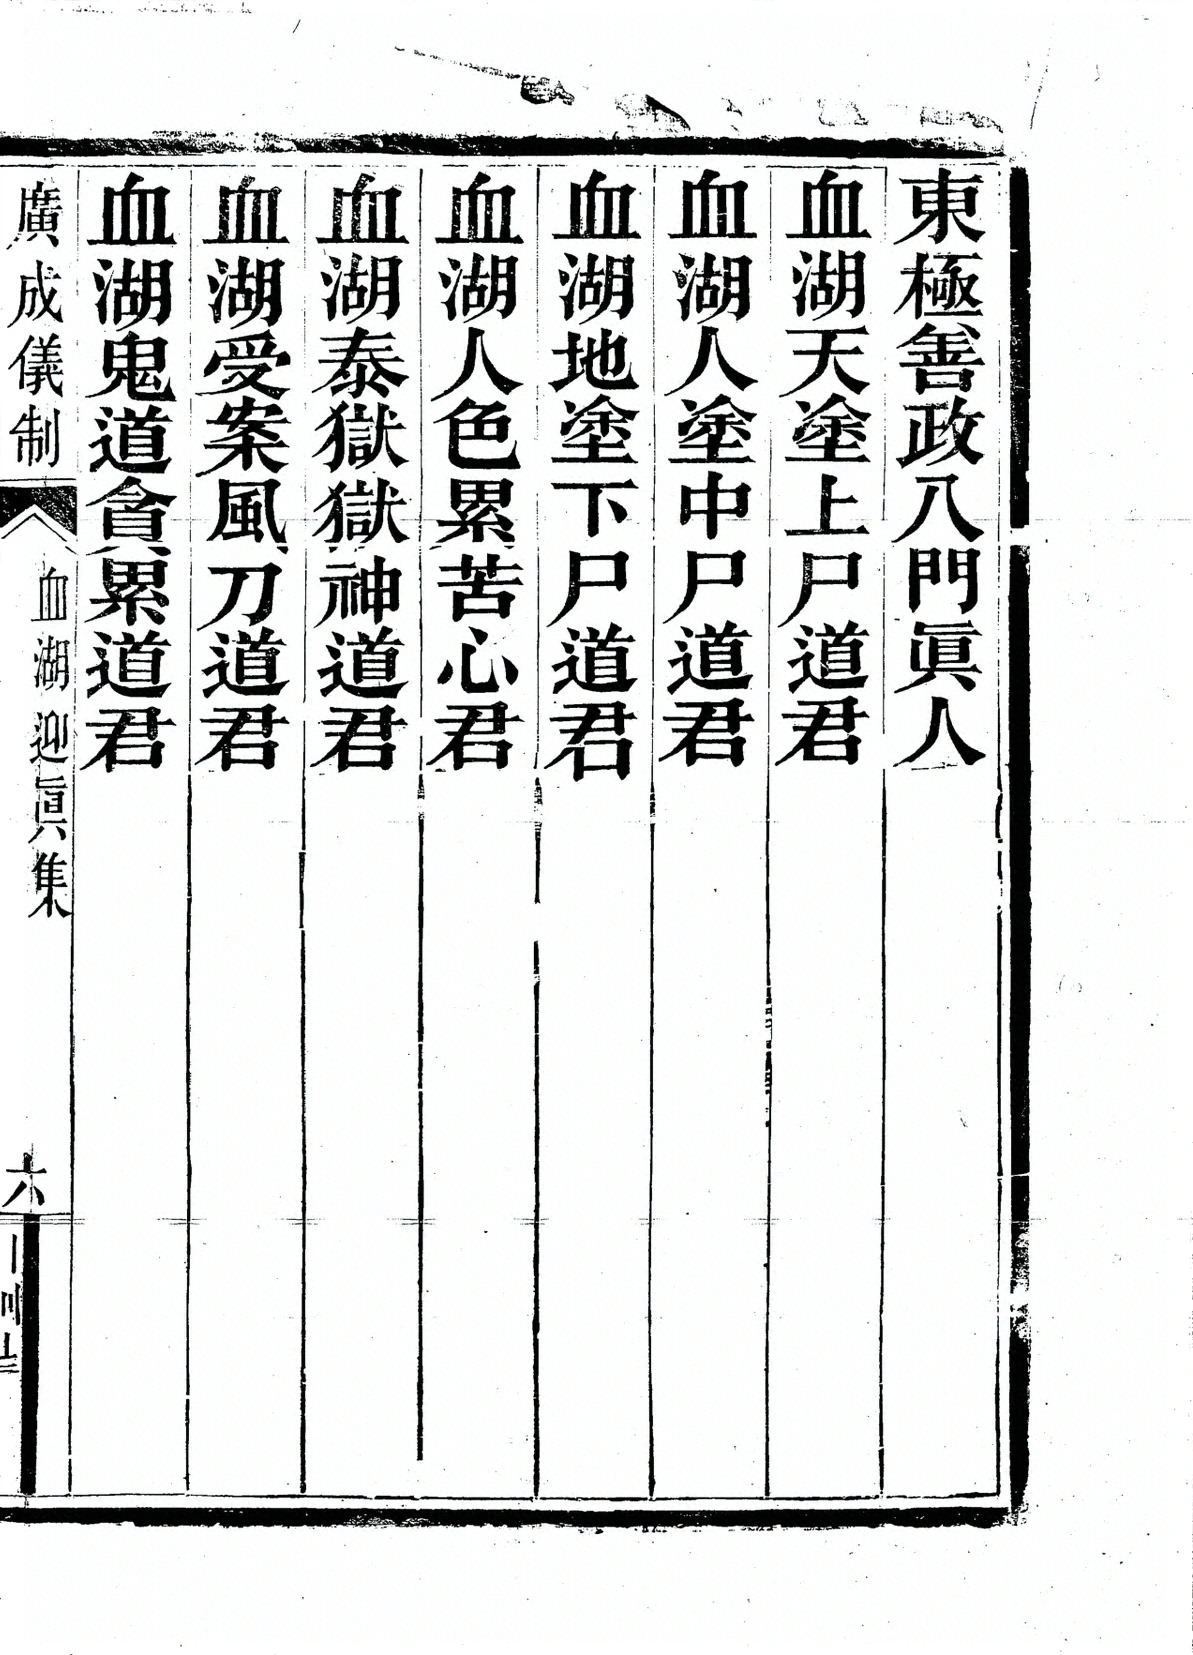 東極善政八門眞人
血湖天塗上尸道君
血湖人塗中尸道君
血湖地塗下尸道君
血湖人色累苦心君
血湖泰獄獄神道君
血湖受案風刀道君
血湖鬼道貪累道君
廣成儀制
血湖迎眞集
六